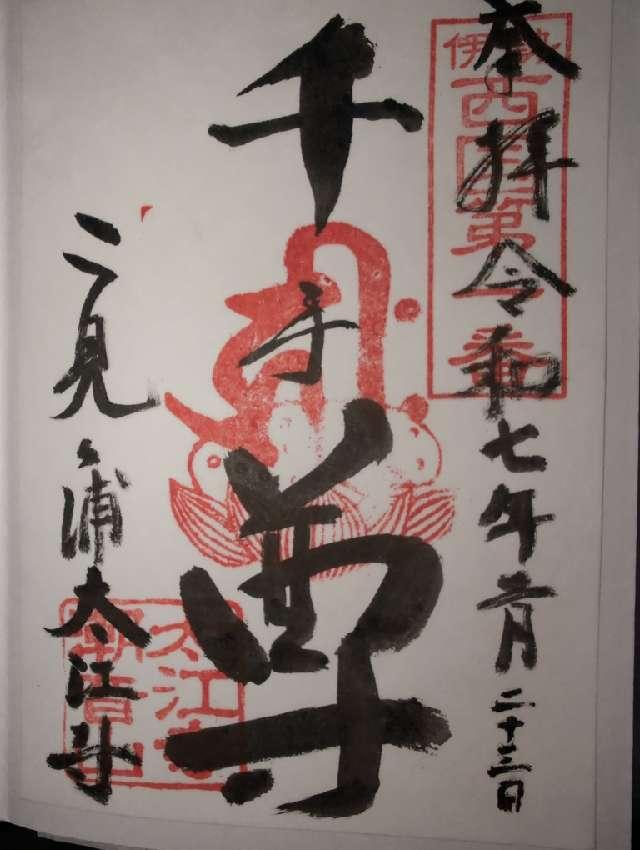 奉拝 令和七年 月二十三日
伊勢
西国第一番
千手尊
二見ヶ浦 太江寺
太江寺